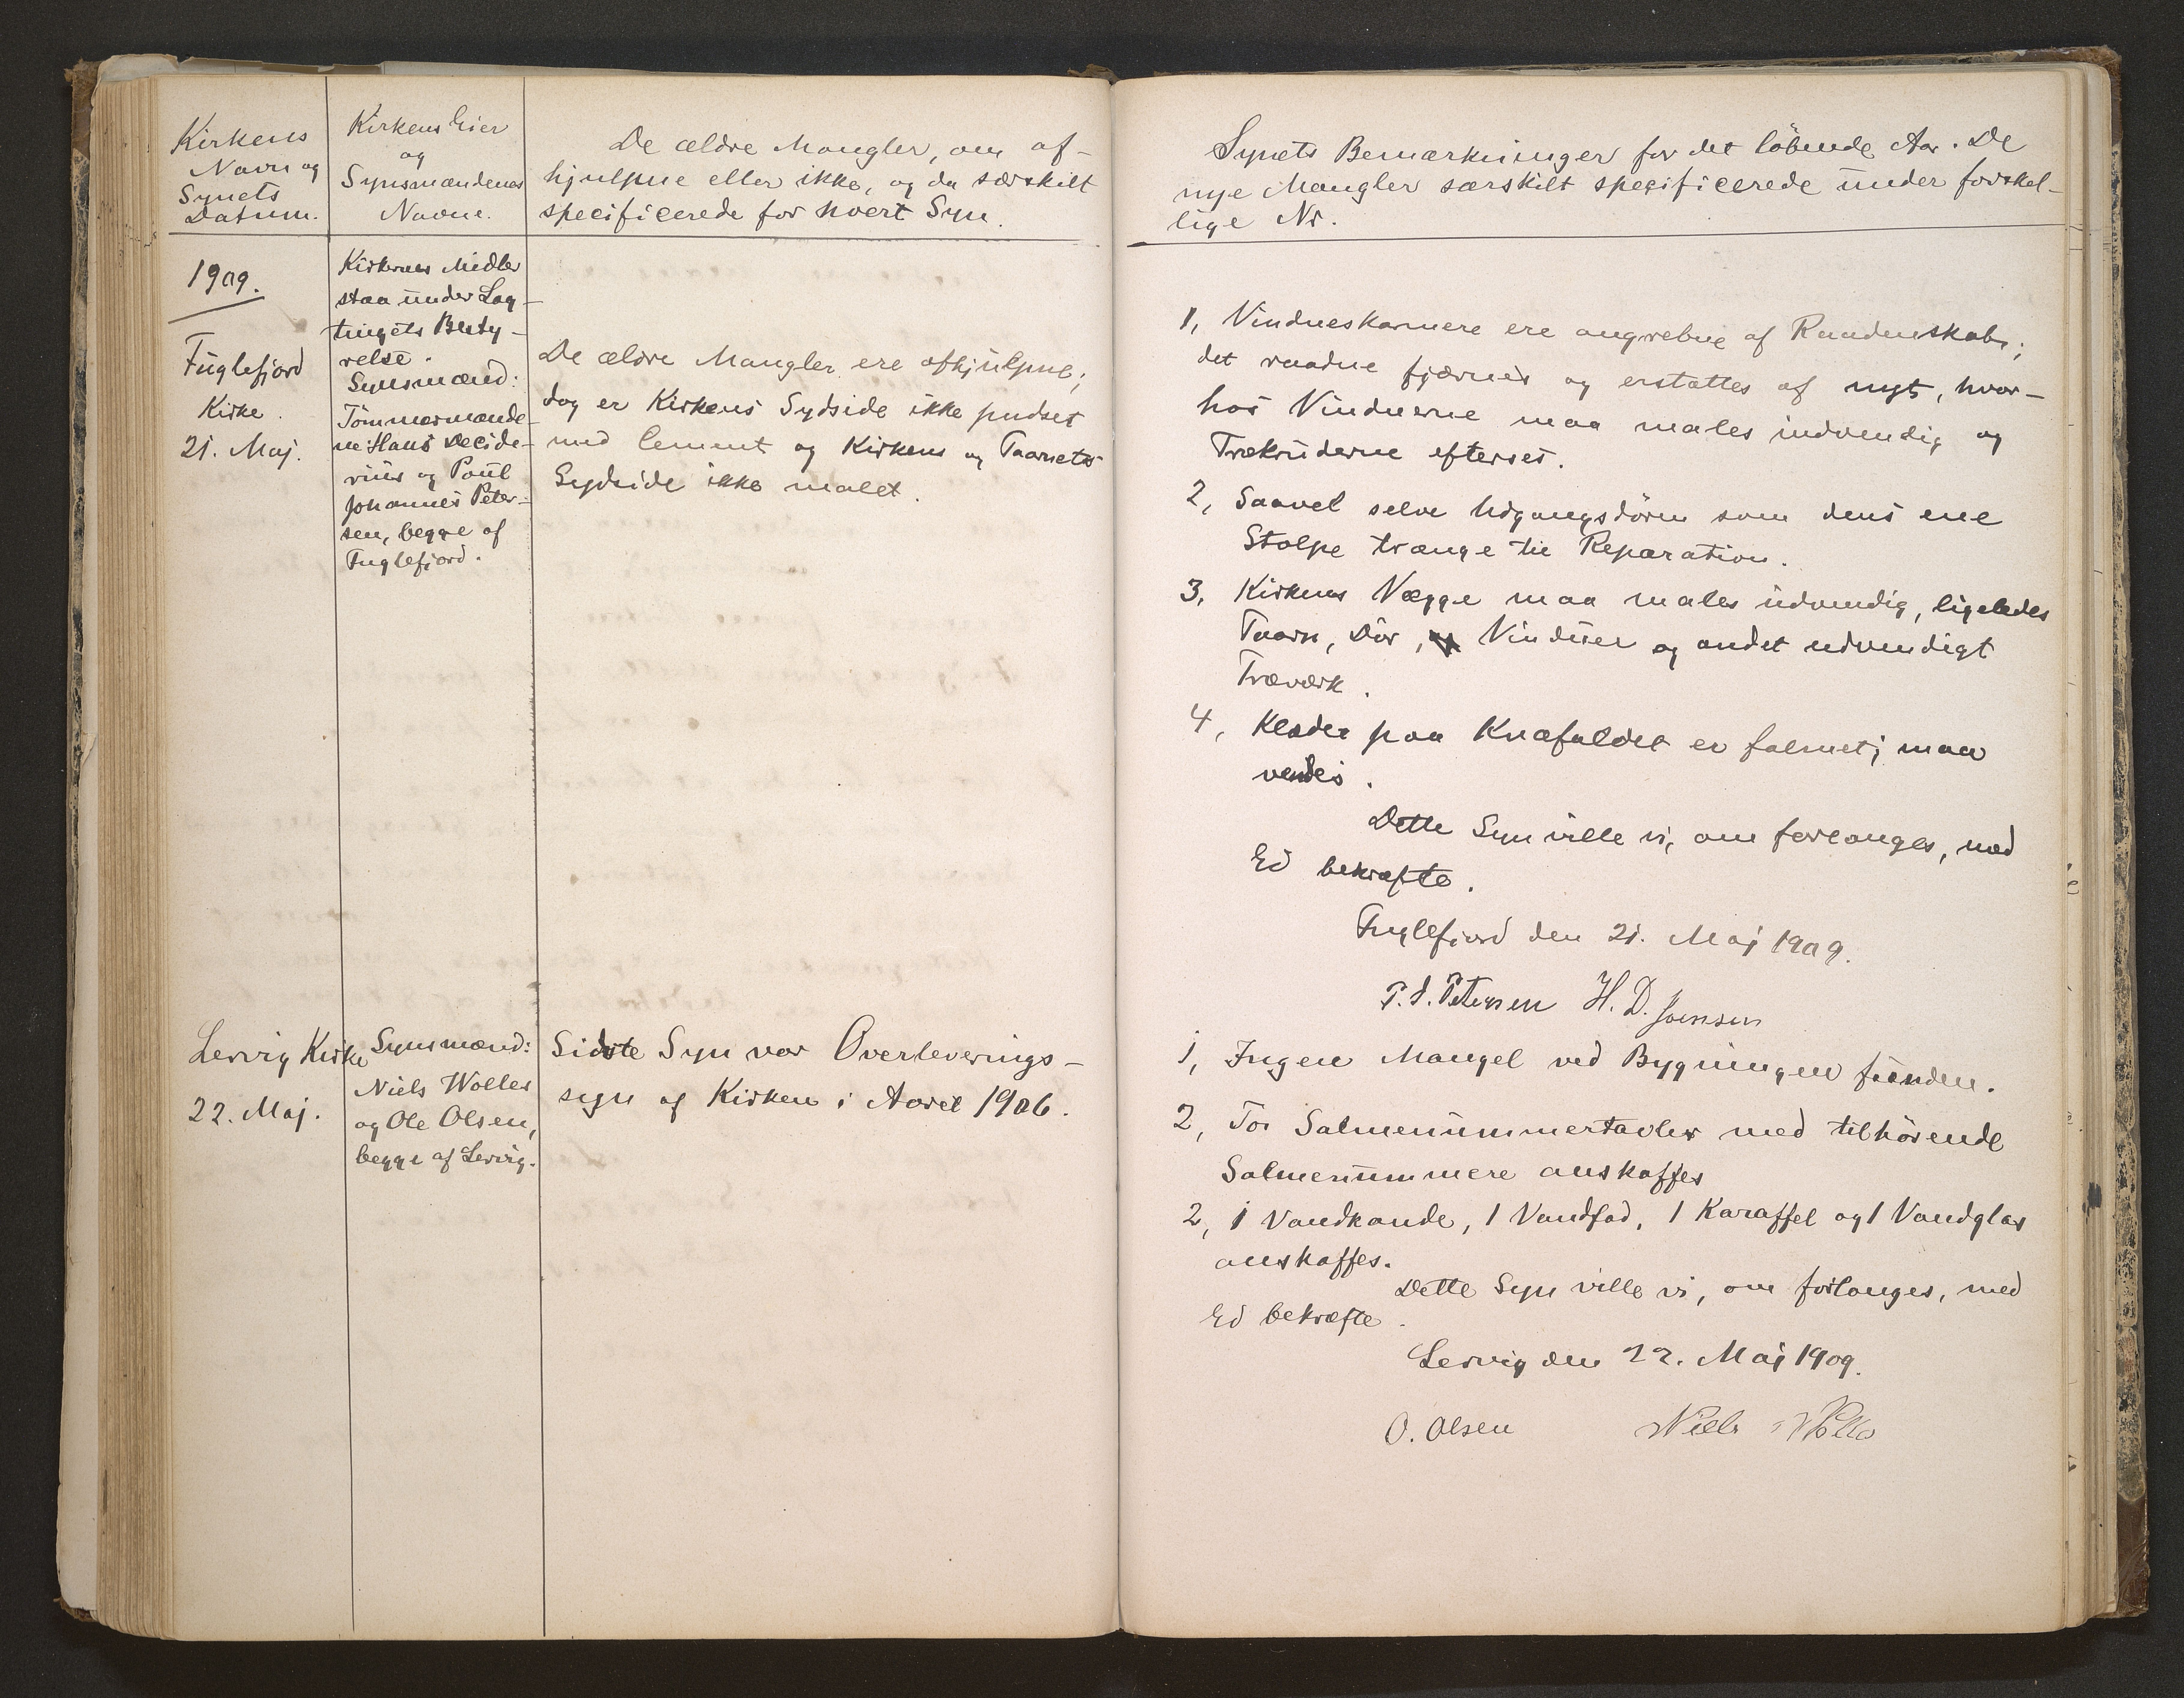 Kirkens
Navn og
Synets
Datum.
Kirkens Eier
og
Synsmændenes
Navne.
De ældre Mangler, om af-
hjulpne eller ikke, og da særskilt
specificerede for hvert Syn.
1909.
Fuglefjord
Kirke.
21. Maj.
Kirkernes Midler
staa under Lag-
tingets Besty-
relse.
Synsmænd:
Tömmermænde-
ne Hans Decide-
rius og Poul
Johannes Peter-
sen, begge af
Fuglefjord.
De ældre Mangler ere afhjulpne;
dog er Kirkens Sydside ikke pudset
med Cement og Kirkens og Taarnets
Sydside ikke malet.
Lervig Kirke
22. Maj.
Synsmænd:
Niels Wolles
og Ole Olsen,
begge af Lervig.
Sidste Syn var Overleverings-
syn af Kirken i Aaret 1906.
Synets Bemærkninger for det löbende Aar. De
nye Mangler særskilt specificerede under forskel-
lige Nr.
1, Vindueskarmere ere angrebne af Raadenskab;
det raadne fjærnes og erstattes af nyt, hvor-
hos Vinduerne maa males indvendig og
Trækruderne efterses.
2, Saavel selve Udgangsdören som dens ene
Stolpe trænge til Reparation.
3, Kirkens Vægge maa males udvendig, ligeledes
Taarn, Dör, Vinduer og andet udvendigt
Træværk.
4, Klædet paa Knæfaldet er falmet; maa
vendes.
Dette Syn ville vi, om forlanges, med
Ed bekræfte.
Fuglefjord den 21. Maj 1909.
P. J. Petersen H. D. Joensen
1, Ingen Mangel ved Bygningen funden.
2, To Salmenummertavler med tilhörende
Salmenummere anskaffes
2, 1 Vandkande, 1 Vandfad, 1 Karaffel og 1 Vandglas
anskaffes.
Dette Syn ville vi, om forlanges, med
Ed bekræfte.
Lervig den 22. Maj 1909.
O. Olsen Niels Wolles